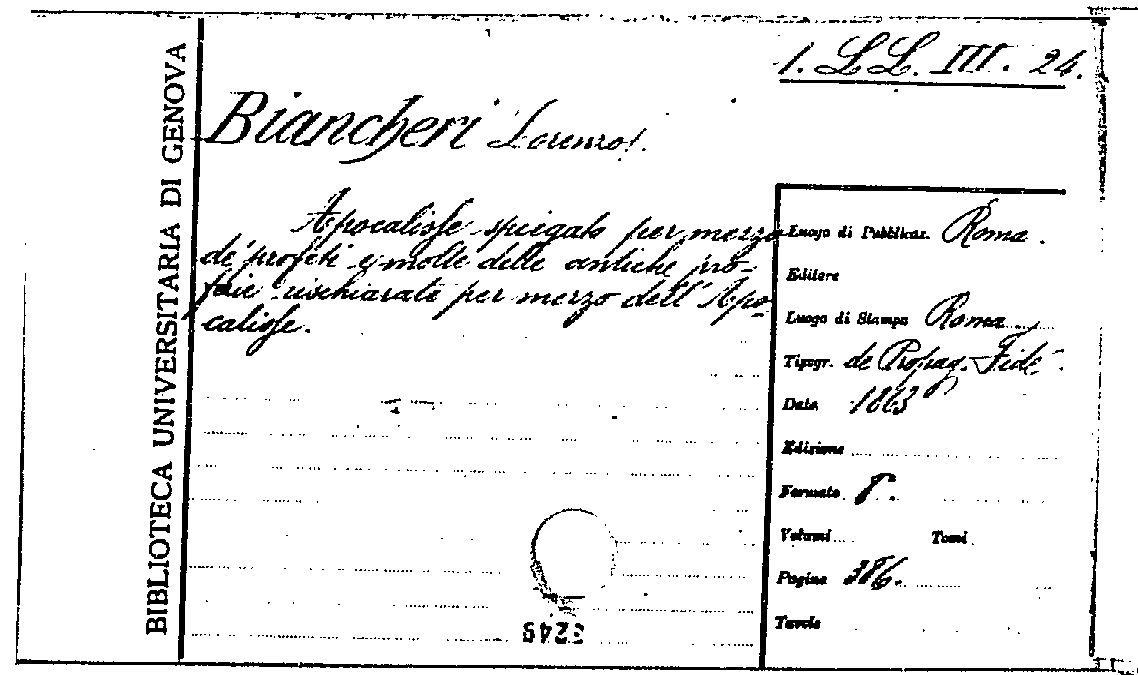 BIBLIOTECA UNIVERSITARIA DI GENOVA
1. LL. III. 24.
Biancheri Lorenzo.
Apocalisse spiegato per mezzo
de' profeti e molte delle antiche pro-
fezie rischiarate per mezzo dell' Apo-
calisse.
Luogo di Pubblicaz. Roma.
Editore
Luogo di Stampa Roma
Tipogr. de Propag. Fide.
Data 1863
Edizione
Formato 8.
Volumi Tomi
Pagine 386.
Tavole
3249